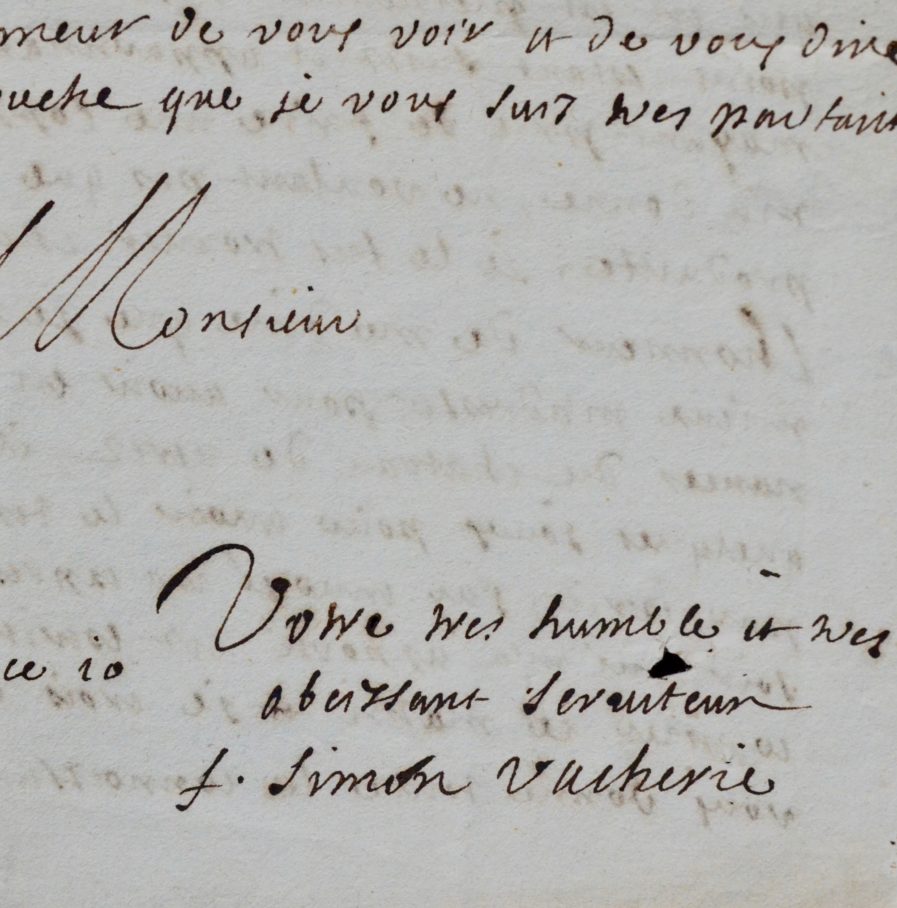 neur de vous voir et de vous dire
ouche que je vous suis tres parfait
Monsieur
Votre tres humble et tres
ce 10
obeissant serviteur
f. Simon Vacherie